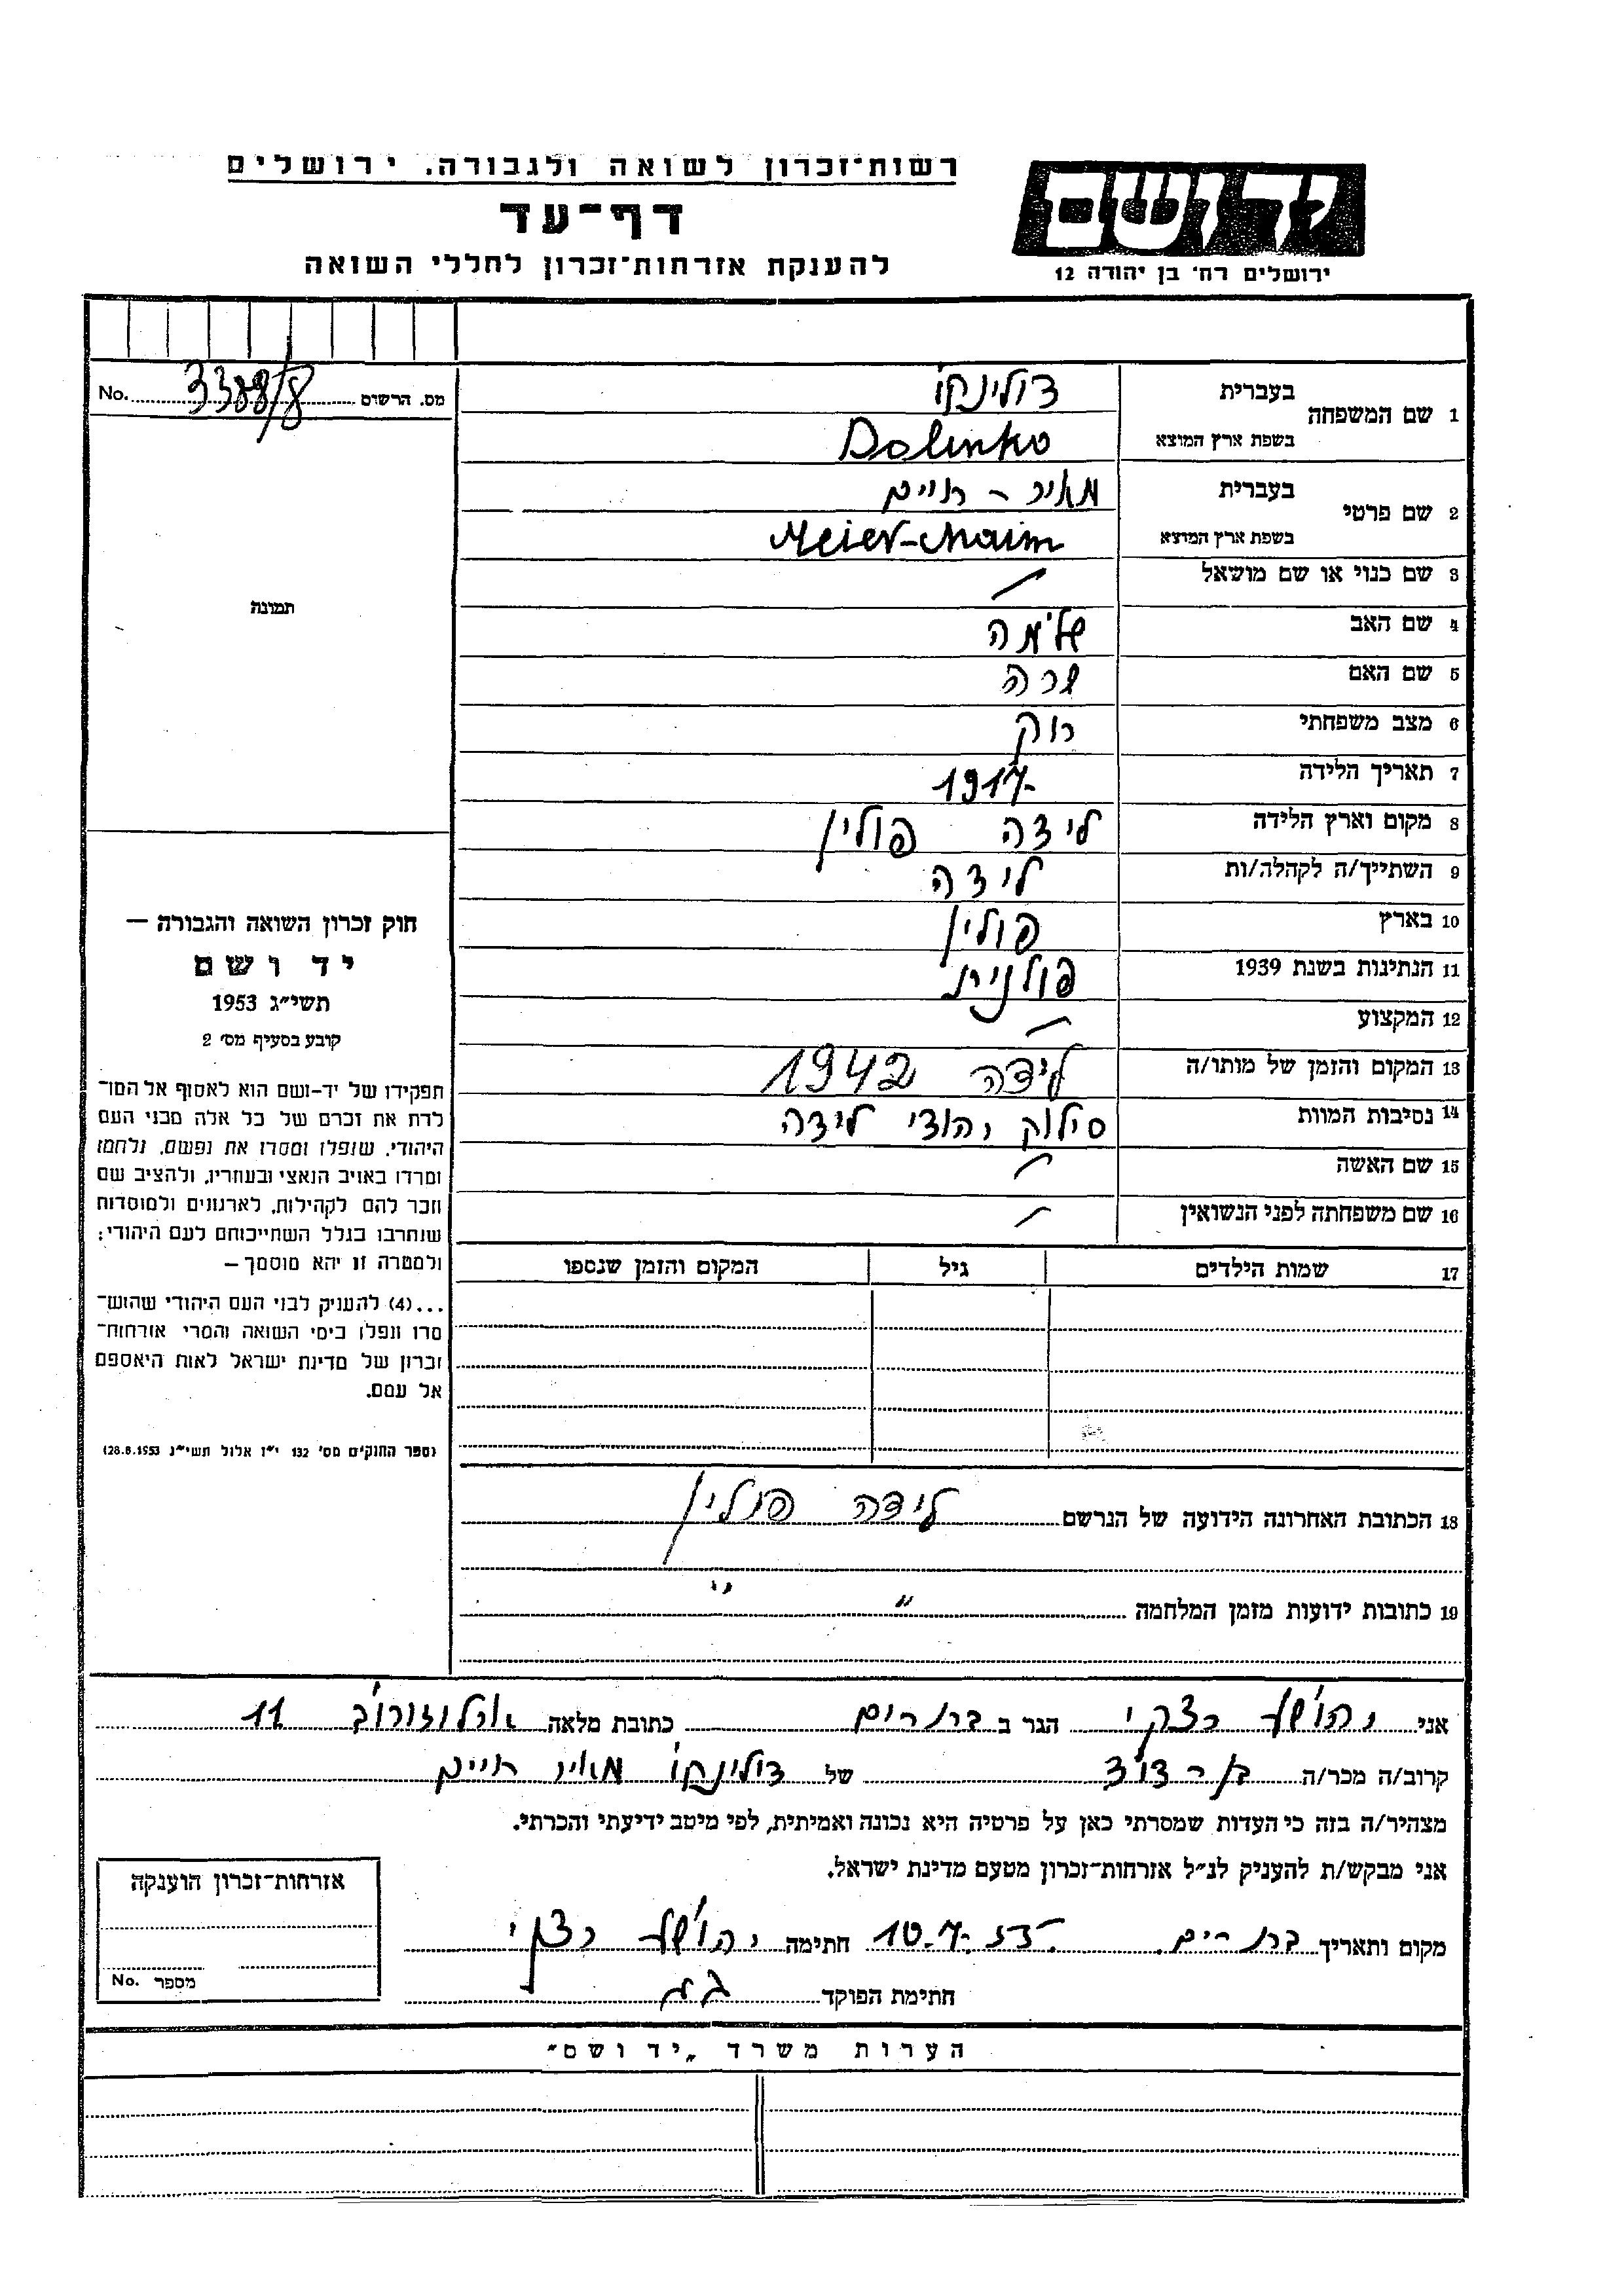 רשות־זכרון לשואה ולגבורה. ירושלים
יד ושם
דף־עד
להענקת אזרחות־זכרון לחללי השואה
ירושלים רח' בן יהודה 12
מס. הרשום 3388/8 No.
1 שם המשפחה
בעברית דולינקו
בשפת ארץ המוצא Dolinko
2 שם פרטי
בעברית מאיר - חיים
בשפת ארץ המוצא Meier-Chaim
3 שם כנוי או שם מושאל
4 שם האב שלמה
5 שם האם שרה
6 מצב משפחתי רווק
7 תאריך הלידה 1917
8 מקום וארץ הלידה לידה פולין
9 השתייך/ה לקהלה/ות לידה
10 בארץ פולין
11 הנתינות בשנת 1939 פולנית
12 המקצוע
13 המקום והזמן של מותו/ה לידה 1942
14 נסיבות המוות סילוק יהודי לידה
15 שם האשה
16 שם משפחתה לפני הנשואין
17 שמות הילדים גיל המקום והזמן שנספו
18 הכתובת האחרונה הידועה של הנרשם לידה פולין
19 כתובות ידועות מזמן המלחמה " "
תמונה
חוק זכרון השואה והגבורה –
יד ושם
תשי״ג 1953
קובע בסעיף מס׳ 2
תפקידו של יד-ושם הוא לאסוף אל המו־
לדת את זכרם של כל אלה מבני העם
היהודי, שנפלו ומסרו את נפשם, נלחמו
ומרדו באויב הנאצי ובעוזריו, ולהציב שם
וזכר להם לקהילות, לארגונים ולמוסדות
שנחרבו בגלל השתייכותם לעם היהודי;
ולמטרה זו יהא מוסמך –
...(4) להעניק לבני העם היהודי שהוש־
מדו ונפלו בימי השואה והמרי אזרחות־
זכרון של מדינת ישראל לאות היאספם
אל עמם.
(ספר החוקים מס׳ 132 י״ז אלול תשי״ג 28.8.1953)
אני יהושע רצקי הגר ב כתובת מלאה ארלוזורוב 11
קרוב/ה מכר/ה בן-דוד של דולינקו מאיר חיים
מצהיר/ה בזה כי העדות שמסרתי כאן על פרטיה היא נכונה ואמיתית, לפי מיטב ידיעתי והכרתי.
אני מבקש/ת להעניק לנ״ל אזרחות־זכרון מטעם מדינת ישראל.
מקום ותאריך 10.7.55 חתימה יהושע רצקי
חתימת הפוקד
אזרחות־זכרון הוענקה
מספר No.
הערות משרד „יד ושם״